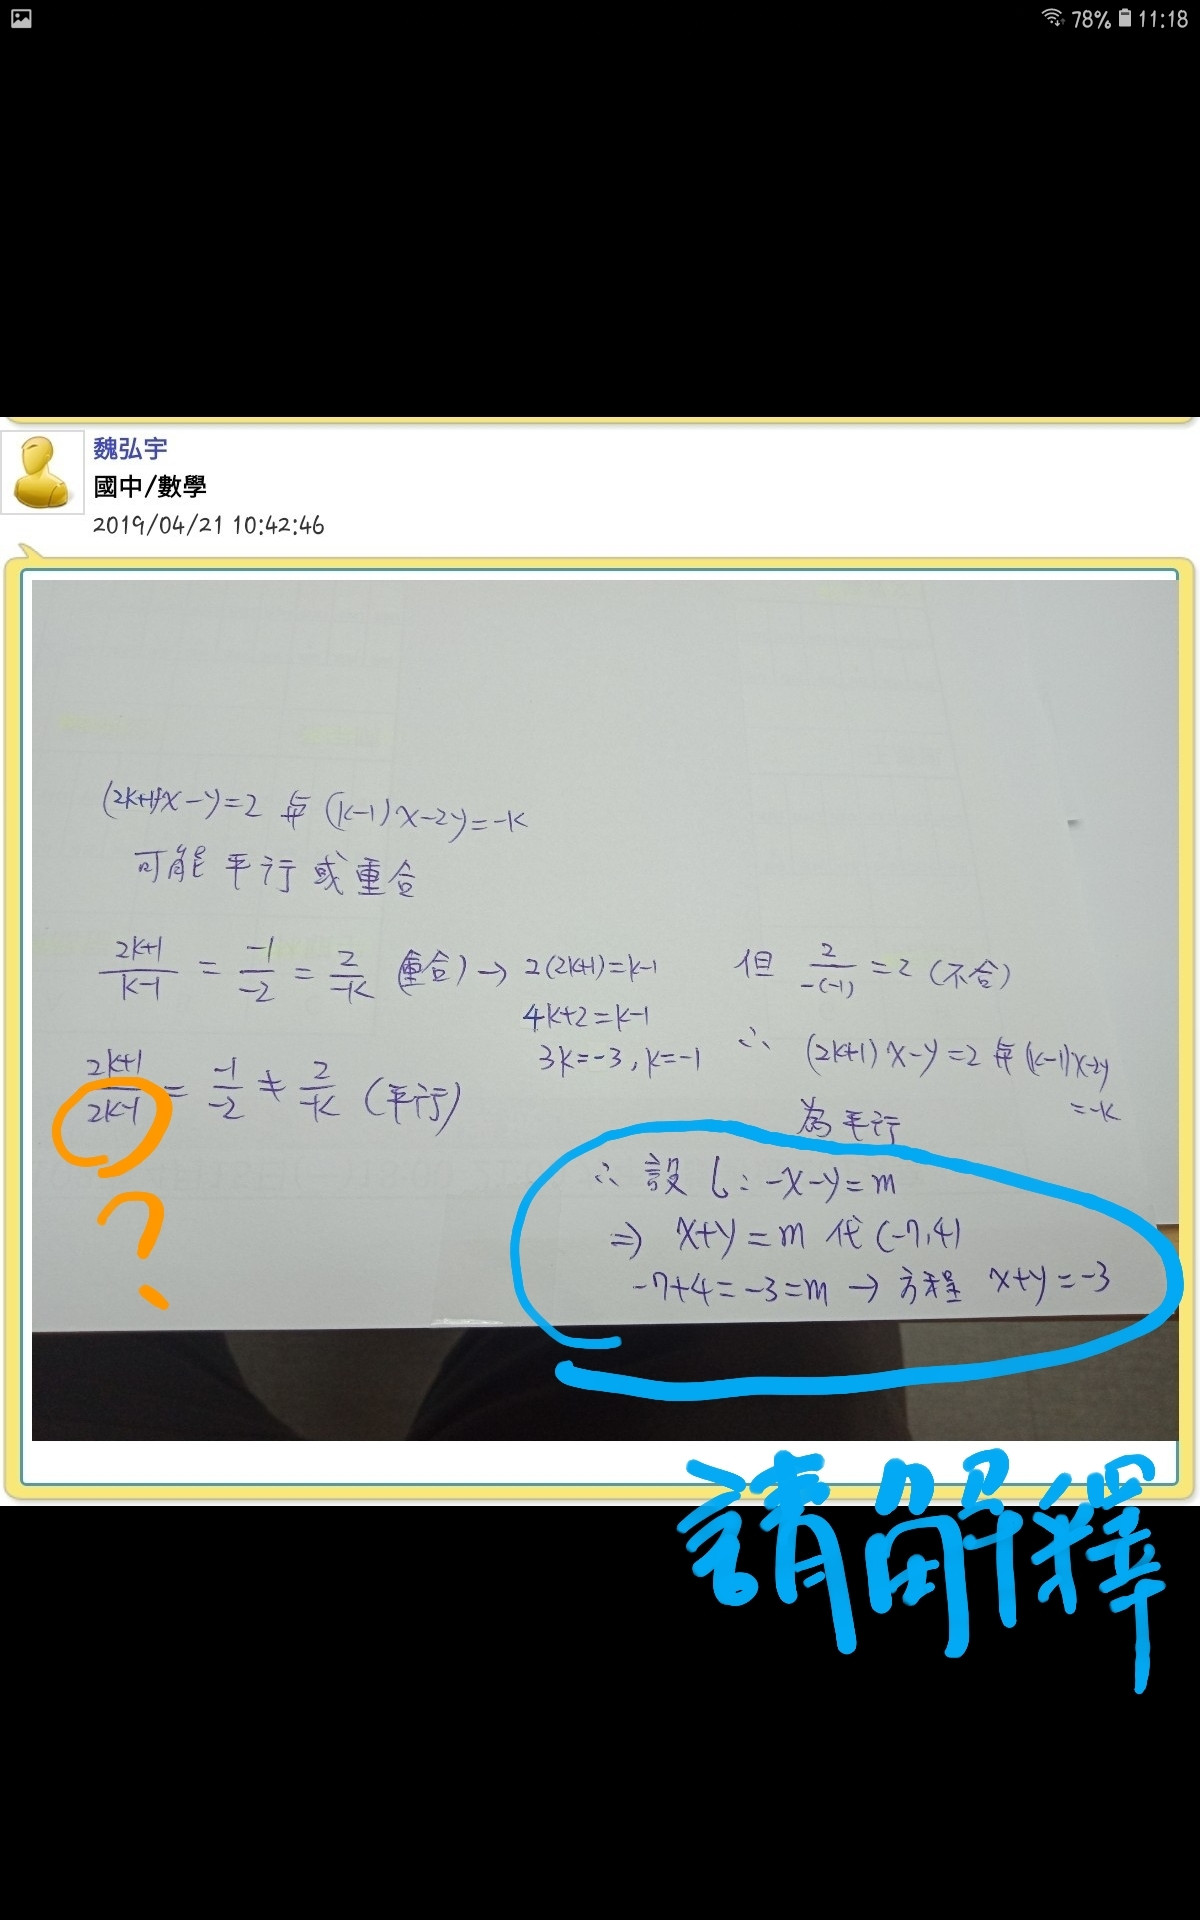 78% 11:18
魏弘宇
國中/數學
2019/04/21 10:42:46
(2k+1)x-y=2 與 (k-1)x-2y=-k
可能平行或重合
2k+1/k-1 = -1/-2 = 2/-k (重合) → 2(2k+1)=k-1
4k+2=k-1
3k=-3, k=-1
2k+1/2k-1 = -1/-2 ≠ 2/-k (平行)
但 2/-(-1) = 2 (不合)
∴ (2k+1)x-y=2 與 (k-1)x-2y
=-k
為平行
∴ 設 L: -x-y=m
⇒ x+y=m 代(-7,4)
-7+4=-3=m → 方程 x+y=-3
?
請解釋